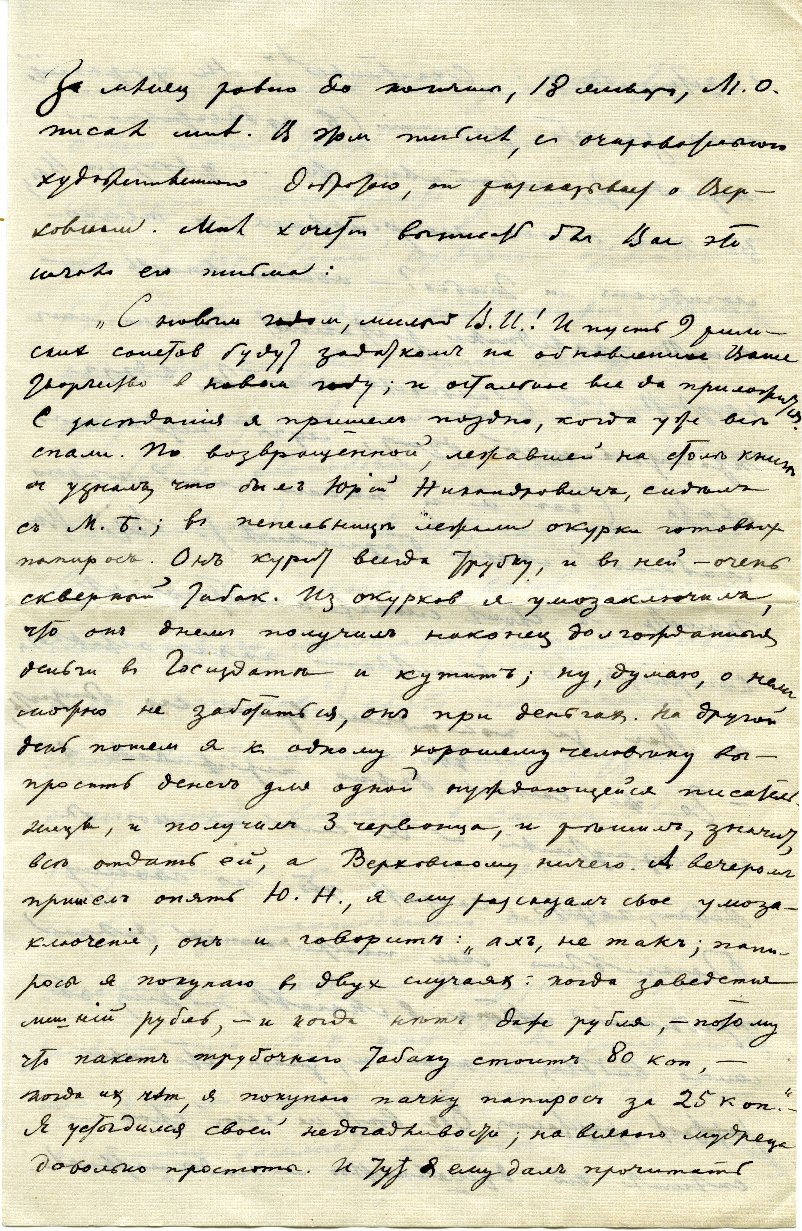 За месяц ровно до кончины, 18 января, М. О.
писал мне. В этом письме, с очаровательною
художественною добротою, он рассказывает о Вер-
ковском. Мне хочется выписать для Вас это
начало его письма:
„С новым годом, милый В. И.! И пусть 9 рим-
ских сонетов будут задаткомъ на обновленное Ваше
творчество в новом году; и остальное все да приложится.
С заседанія я пришелъ поздно, когда уже все
спали. По возвращенной, лежавшей на столе книге
я узналъ, что былъ Юрій Никандровичъ, сиделъ
съ М. Б.; въ пепельнице лежали окурки готовых
папиросъ. Онъ курит всегда трубку, и въ ней – очень
скверный табак. Из окурков я умозаключилъ,
что онъ днемъ получилъ наконец долгожданныя
деньги въ Госиздате и кутитъ; ну, думаю, о нем
можно не заботиться, онъ при деньгах. На другой
день пошел я к одному хорошему человеку вы-
просить денегъ для одной нуждающейся писатель-
ницы, и получилъ 3 червонца, и решилъ, значит,
все отдать ей, а Верковскому ничего. А вечеромъ
пришелъ опять Ю. Н., я ему разсказалъ свое умоза-
ключеніе, онъ и говоритъ: „ахъ, не такъ; папи-
росы я покупаю в двух случаях: когда заведется
лишній рубль, – и когда нетъ даже рубля, – потому
что пакетъ трубочнаго табаку стоитъ 80 коп., –
когда их нет, я покупаю пачку папиросъ за 25 коп.“ –
Я устыдился своей недогадливости; на всякого мудреца
довольно простоты. И тут я ему далъ прочитать